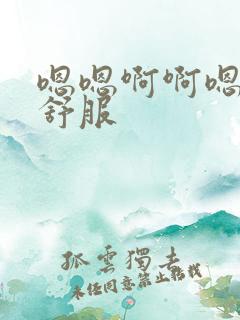 嗯嗯啊啊嗯
舒服
孤雲獨去
未经同意禁止转载